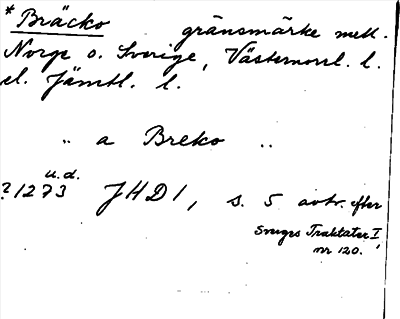 * Bräcko gränsmärke mell.
Norge o. Sverige, Västernorrl. l.
el. Jämtl. l.
" a Breko "
u.d.
?1273 JHD 1, s. 5 avtr. efter
Sverges Traktater I,
nr 120.